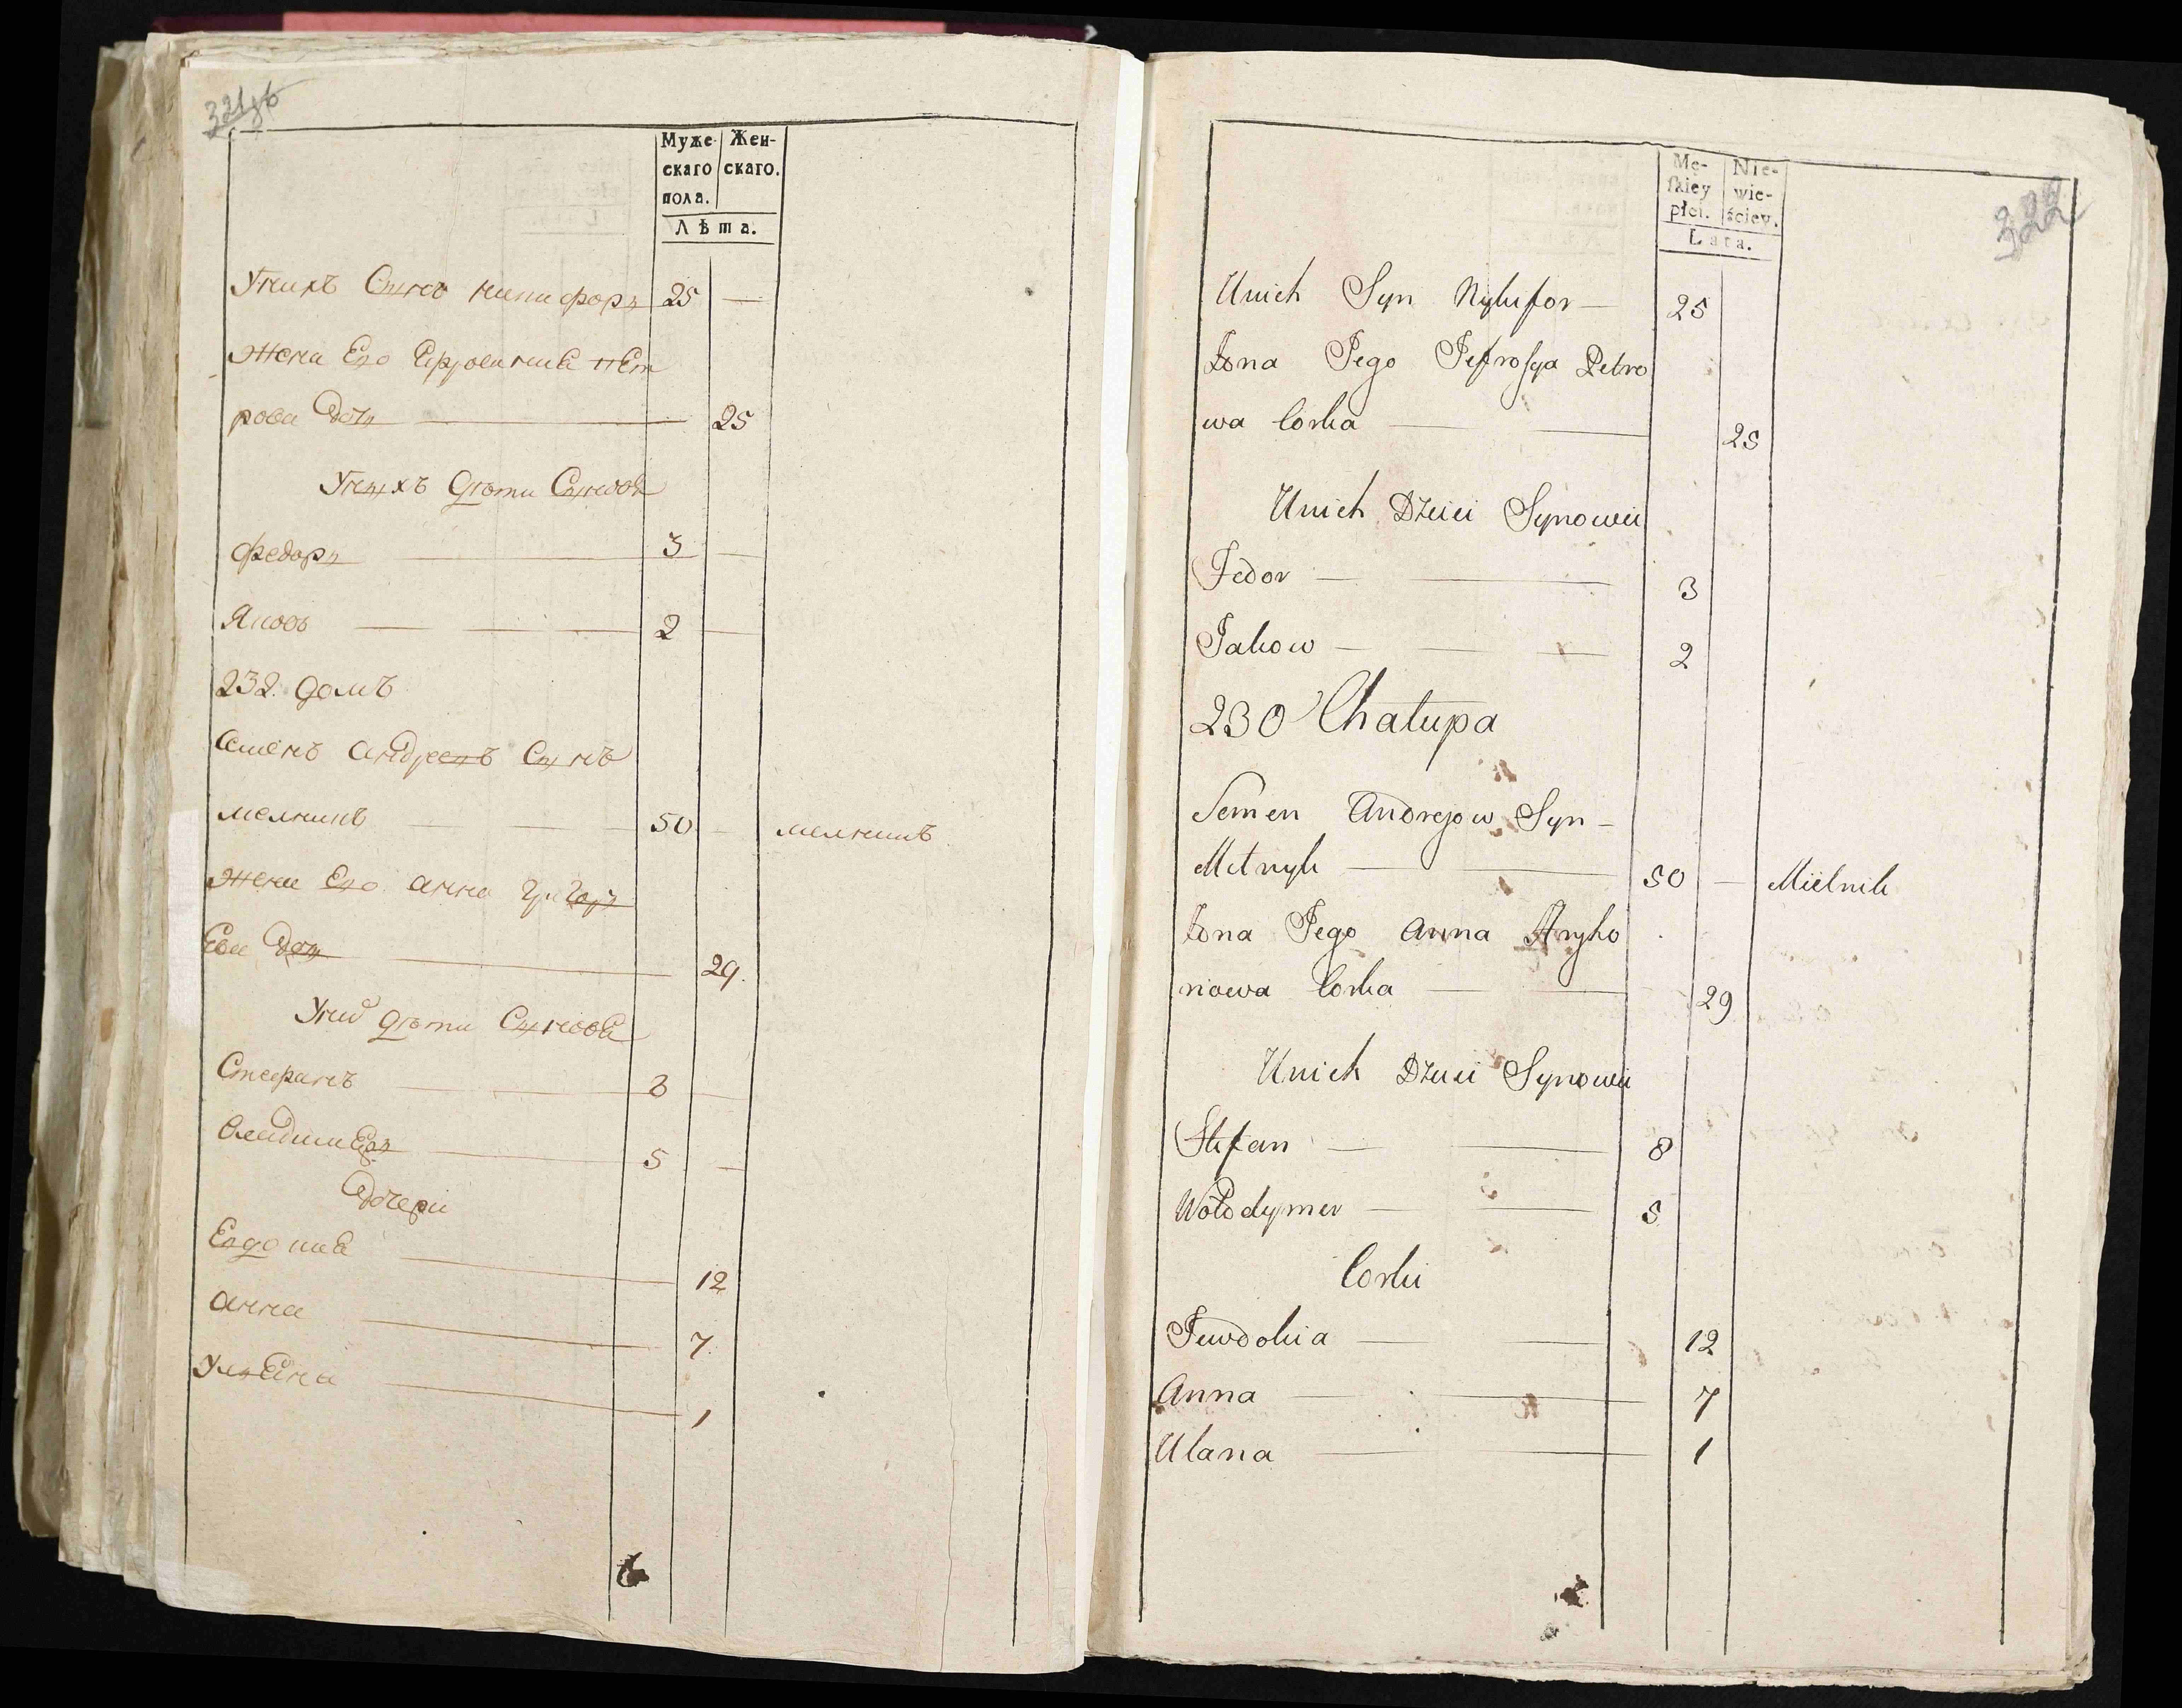 321зв
Муже- Жен-
скаго скаго.
пола.
Лѣта.
Унихъ Сынъ никифоръ 25 —
Жена Его Ефросиния пет
рова дочь — 25
Унихъ дѣти Синовя
федоръ — 3 —
Яковъ — 2 —
232. домъ
Семенъ андреевъ Сынъ
мелникъ — 50 — мелникъ
Жена Его анна григорь
ева дочь — 29.
Унихъ дѣти Синовя
Стефанъ — 8 —
владимеръ — 5 —
дочери
Евдокия — 12
анна — 7
Ульяна — 1
322
Mę- Nie-
skiey wie-
płci. ściey.
Lata.
Unich Syn Nykyfor — 25
Żona Jego Jefrosya Petro
wa Corka — 25
Unich Dzieci Synowie
Fedor — 3
Jakow — 2
230 Chałupa
Semen Andrejow Syn —
Melnyk — 50 — Mielnik
Żona Jego Anna Hryho
riowa Corka — 29
Unich Dzieci Synowie
Stefan — 8
Wołodymer — 5
Corki
Jewdokia — 12
Anna — 7
Ulana — 1